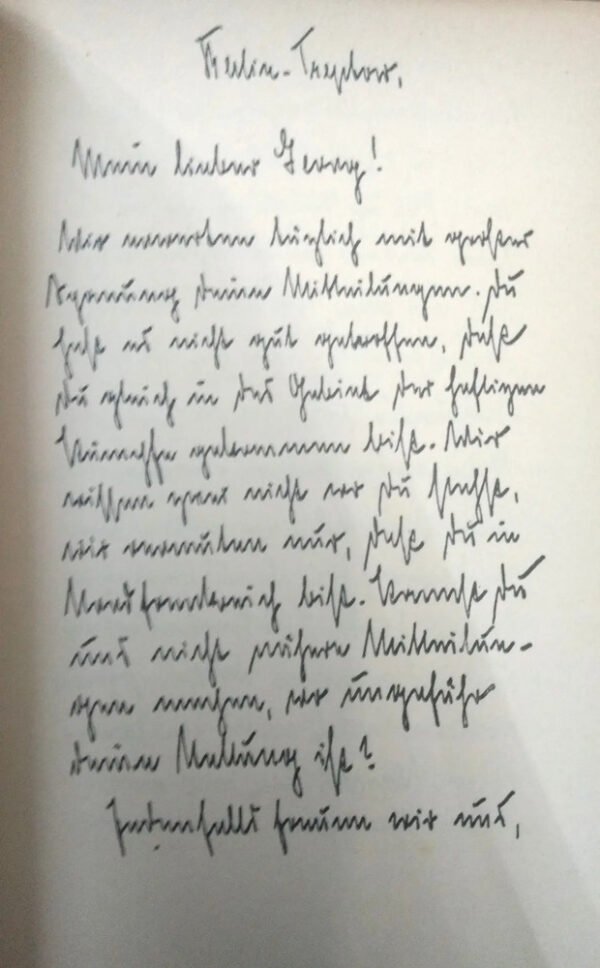 Berlin-Treptow,
Mein lieber Georg!
Wir erwarten täglich mit großer
Spannung deine Mitteilungen. Du
hast es nicht gut getroffen, daß
du gleich in das Gebiet der heftigen
Kämpfe gekommen bist. Wir
wissen gar nicht wo du stehst,
wir vermuten nur, daß du in
Nordfrankreich bist. Kannst du
uns nicht nähere Mitteilun-
gen machen, wo ungefähr
deine Stellung ist?
Jedenfalls freuen wir uns,